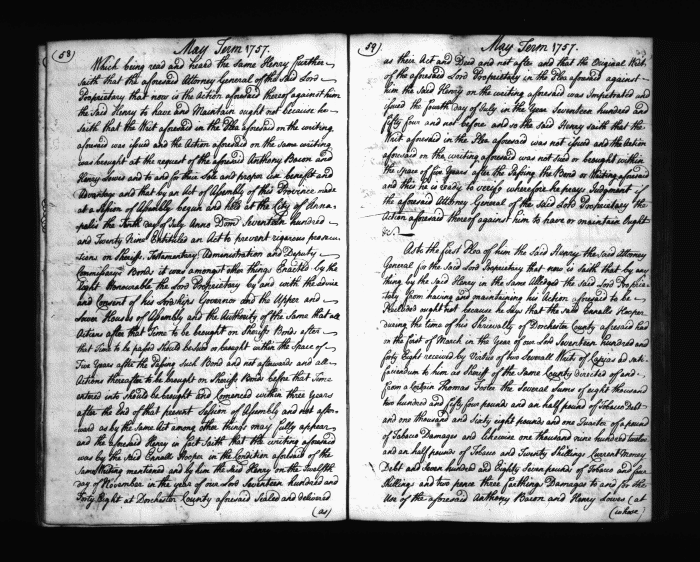 (58) May Term 1757.
Which being read and heard the same Henry further
saith that the aforesaid Attorney General of the said Lord
Proprietary that now is the Action aforesaid thereof against him
the said Henry to have and Maintain ought not because he
saith that the Writ aforesaid in the Plea aforesaid on the writing
aforesaid was issued and the Action aforesaid on the same writing
was brought at the request of the aforesaid Anthony Bacon and
Henry Lowes and to and for their Sole and proper use benefit and
Advantage and that by an Act of Assembly of this Province made
at a Session of Assembly begun and held at the City of Anna-
polis the Tenth day of July Anno Dom Seventeen hundred
and Twenty Nine Entituled an Act to prevent rigorous prosecu-
tions on Sheriffs Testamentary Administration and Deputy
Commissarys Bonds it was amongst other things Enacted by the
Right Honourable the Lord Proprietary by and with the advice
and Consent of his Lordships Governor and the Upper and
Lower Houses of Assembly and the Authority of the Same that all
Actions after that Time to be brought on Sheriff Bonds after
that Time to be passed should be Sued or brought within the Space of
Five Years after the Passing such Bond and not afterwards and all
Actions thereafter to be brought on Sheriffs Bonds before that Time
entered into should be brought and Comenced within three Years
after the End of that present Session of Assembly and not after-
ward as by the same Act among other things may fully appear
and the aforesaid Henry in fact Saith that the writing aforesaid
was by the said Ennalls Hooper in the Condition aforesaid of the
Same Writing mentioned and by him the said Henry on the Twelfth
day of November in the year of our Lord Seventeen hundred and
Forty Eight at Dorchester County aforesaid Sealed and delivered
(as)
(59) May Term 1757.
as their Act and Deed and not after and that the Original Writ
of the aforesaid Lord Proprietary in the Plea aforesaid against
him the said Henry on the writing aforesaid was Impetrated and
issued the fourth day of July in the Year Seventeen hundred and
fifty four and not before and so the said Henry saith that the
Writ aforesaid in the Plea aforesaid was not issued and the Action
aforesaid on the writing aforesaid was not sued or brought within
the Space of five Years after the Passing the Bond or Writing aforesaid
and this he is ready to verify wherefore he prays Judgment if
the aforesaid Attorney General of the said Lord Proprietary the
Action aforesaid thereof against him to have or maintain Ought
&c.
As to the first Plea of him the said Henry the said Attorney
General for the said Lord Proprietary that now is saith that by any
thing by the said Henry in the same Alledged the said Lord Proprie-
tary from having and maintaining his Action aforesaid to be
Precluded ought not because he says that the said Ennalls Hooper
during the time of his Shrievalty of Dorchester County aforesaid had
on the first of March in the Year of our Lord Seventeen hundred and
forty Eight received by Virtue of two Several Writs of Capias ad satis-
faciendum to him as Sheriff of the same County directed of and
from a Certain Thomas Foster the Several Sums of eight thousand
two hundred and fifty four pounds and an half pound of Tobacco Debt
and one thousand and Sixty eight pounds and one Quarter of a pound
of Tobacco Damages and likewise one thousand nine hundred twelve
and an half pounds of Tobacco and Twenty Shillings Current Money
Debt and Seven hundred and Eighty Seven pounds of Tobacco and four
Shillings and two pence three farthings Damages to and for the
Use of the aforesaid Anthony Bacon and Henry Lowes (at
(whose)